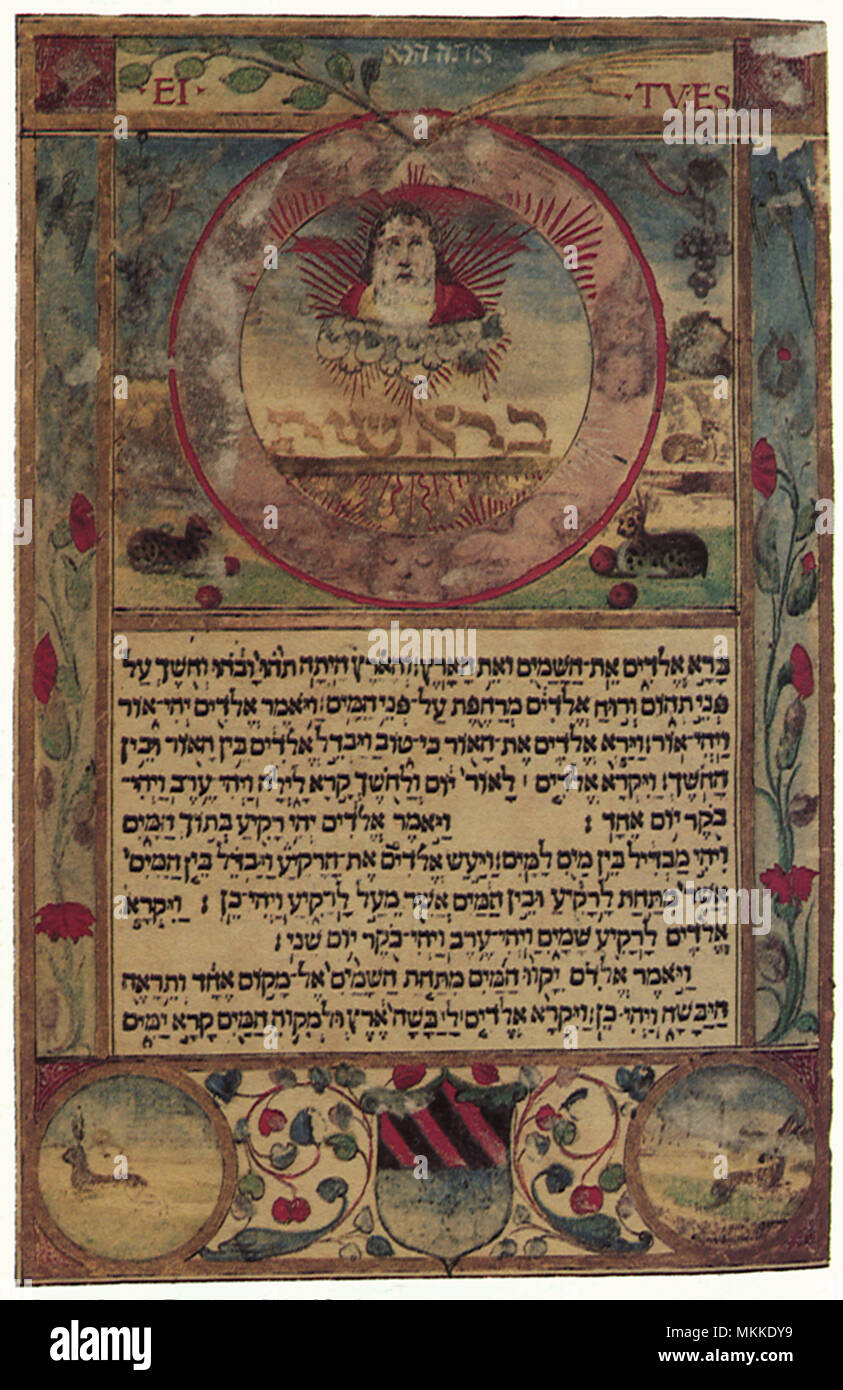 ·EI· ·TVES
בראשית
ברא אלדים את־השמים ואת הארץ׃ והארץ היתה תהו ובהו וחשך על
פני תהום ורוח אלדים מרחפת על־פני המים׃ ויאמר אלדים יהי־אור
ויהי־אור׃ וירא אלדים את־האור כי־טוב ויבדל אלדים בין האור ובין
החשך׃ ויקרא אלדים ׀ לאור יום ולחשך קרא לילה ויהי ערב ויהי־
בקר יום אחד ׃ ויאמר אלדים יהי רקיע בתוך המים
ויהי מבדיל בין מים למים׃ ויעש אלדים את־הרקיע ויבדל בין המים
אשר מתחת לרקיע ובין המים אשר מעל לרקיע ויהי־כן ׃ ויקרא
אלדים לרקיע שמים ויהי־ערב ויהי־בקר יום שני ׃
ויאמר אלדים יקוו המים מתחת השמים אל־מקום אחד ותראה
היבשה ויהי־כן׃ ויקרא אלדים ליבשה ארץ ולמקוה המים קרא ימים
alamy
Image ID: MKKDY9
www.alamy.com